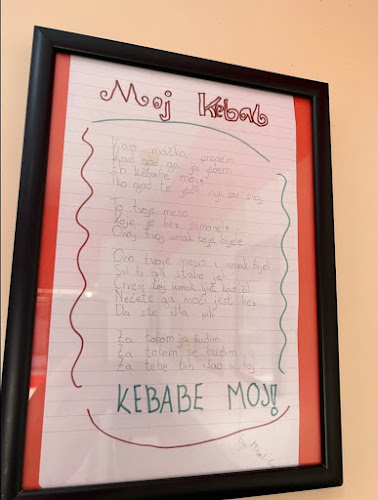 Moj Kebab
Kao mačka predem
Kad god ga ja jedem
Eh kebabe moj,
Ko god te jede nije svoj
To tvoje meso
Koje je bez
Onaj tvoj umak boje bijele
Ono tvoje meso i umak bijeli
Svi bi ga stalno jeli
Crveni tvoj umak ljut kao
Nećete ga moći jest bez
Da ste išta pili
Za tobom ja žudim
Za tobom se budim
Za tebe bih išao u boj
KEBABE MOJ!
by: